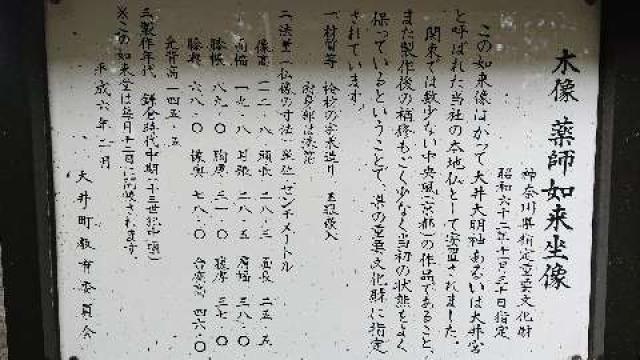 木像 薬師如来坐像
神奈川県指定重要文化財
昭和六十二年十一月三十日指定
この如来像はかつて大井大明神あるいは大井宮
と呼ばれた当社の本地仏として安置されました。
関東では数少ない中央風(京都)の作品であること
また製作後の補修もごく少なく当初の状態をよく
保っているということで、県の重要文化財に指定
されています。
一、材質等 桧材の寄木造り 玉眼嵌入
二、法量(仏像の寸法)単位:センチメートル
像高 一一二・八 頭長 二八・三 面長 二五・五
一九・八 二八・五 三八・〇
膝張 八九・〇 三一・〇 三七・〇
六八・〇 七八・〇 台座高 四六・〇
光背高 一四五・五
三、製作年代 鎌倉時代中期(十三世紀中頃)
※この如来堂は毎月十二日に開放されます。
平成六年二月
大井町教育委員会